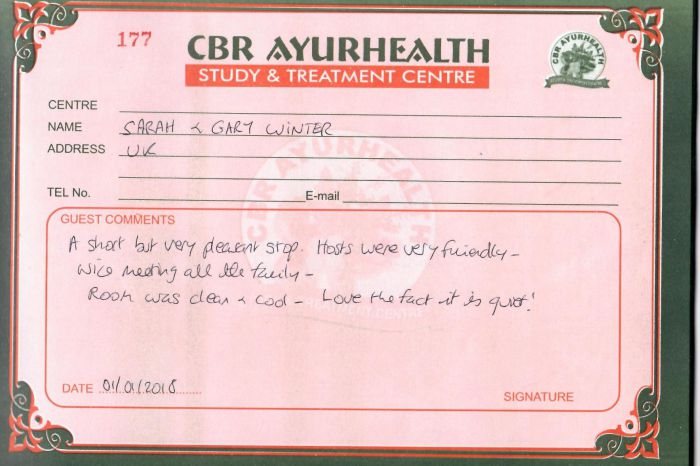 177
CBR AYURHEALTH
STUDY & TREATMENT CENTRE
CBR AYURHEALTH
CENTRE
NAME SARAH & GARY WINTER
ADDRESS UK
TEL No. E-mail
CBR AYURHEALTH
GUEST COMMENTS
A short but very pleasant stop. Hosts were very friendly -
Nice meeting all the family -
Room was clean & cool - Love the fact it is quiet!
DATE 01/01/2018
SIGNATURE